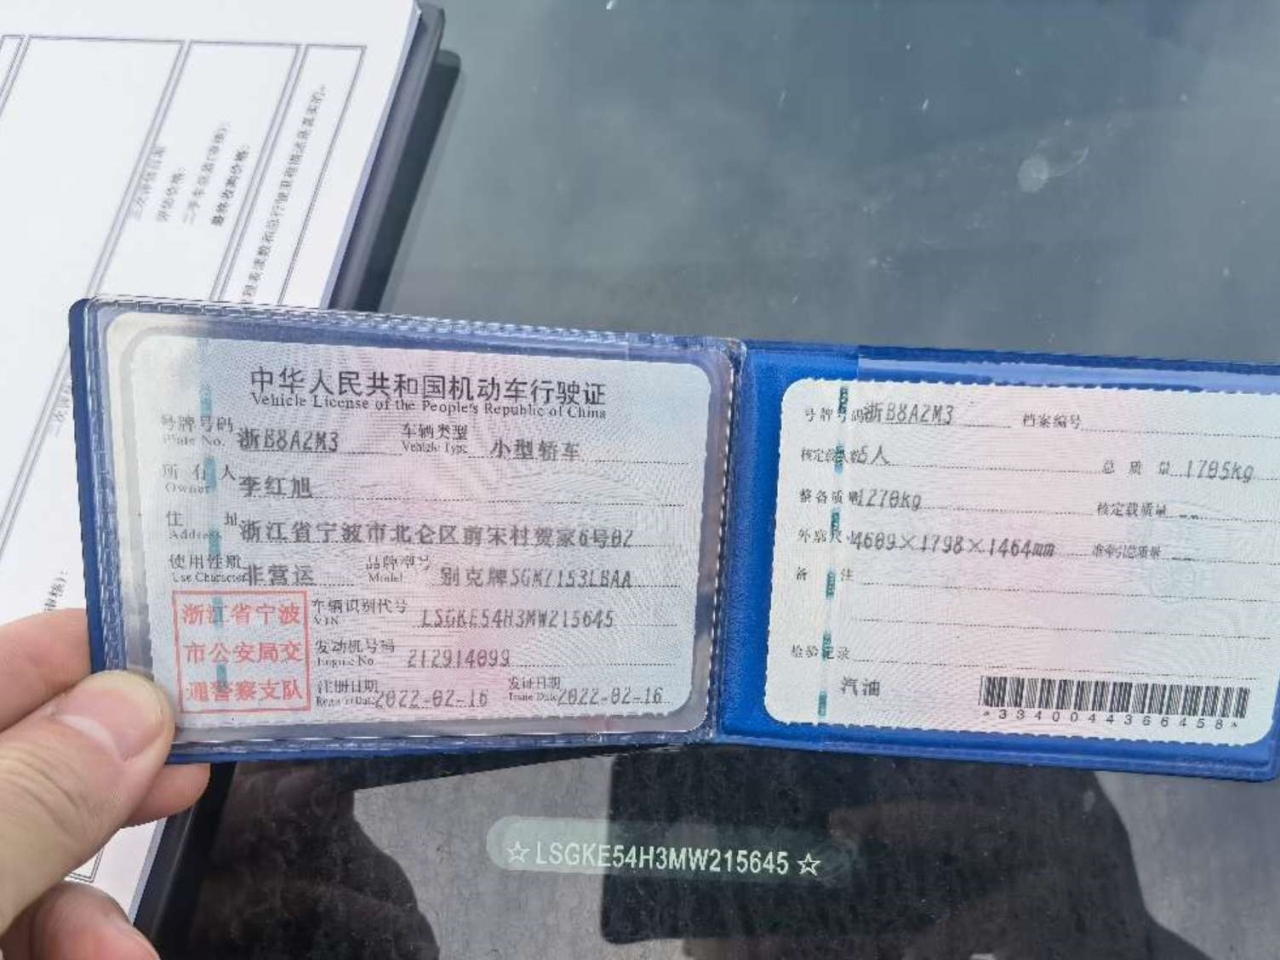 二次评估日期
评估价格:
二手车总监(审核):
最终收购价格:
中华人民共和国机动车行驶证
Vehicle License of the People's Republic of China
号牌号码 浙B8A2M3 车辆类型 小型轿车
Plate No. Vehicle Type
所有人 李红旭
Owner
住址 浙江省宁波市北仑区前宋村贺家6号02
Address
使用性质 非营运 品牌型号 别克牌SGM7153LBAA
Use Character Model
浙江省宁波
市公安局交
通警察支队
车辆识别代号 LSGKE54H3MW215645
VIN
发动机号码 212914099
Engine No.
注册日期 2022-02-16 发证日期 2022-02-16
Register Date Issue Date
号牌号码 浙B8A2M3 档案编号
核定载人数 5人 总质量 1705kg
整备质量 1270kg 核定载质量 --
外廓尺寸 4609×1798×1464mm 准牵引总质量
备注
检验记录
汽油
*3340044366458*
☆LSGKE54H3MW215645☆